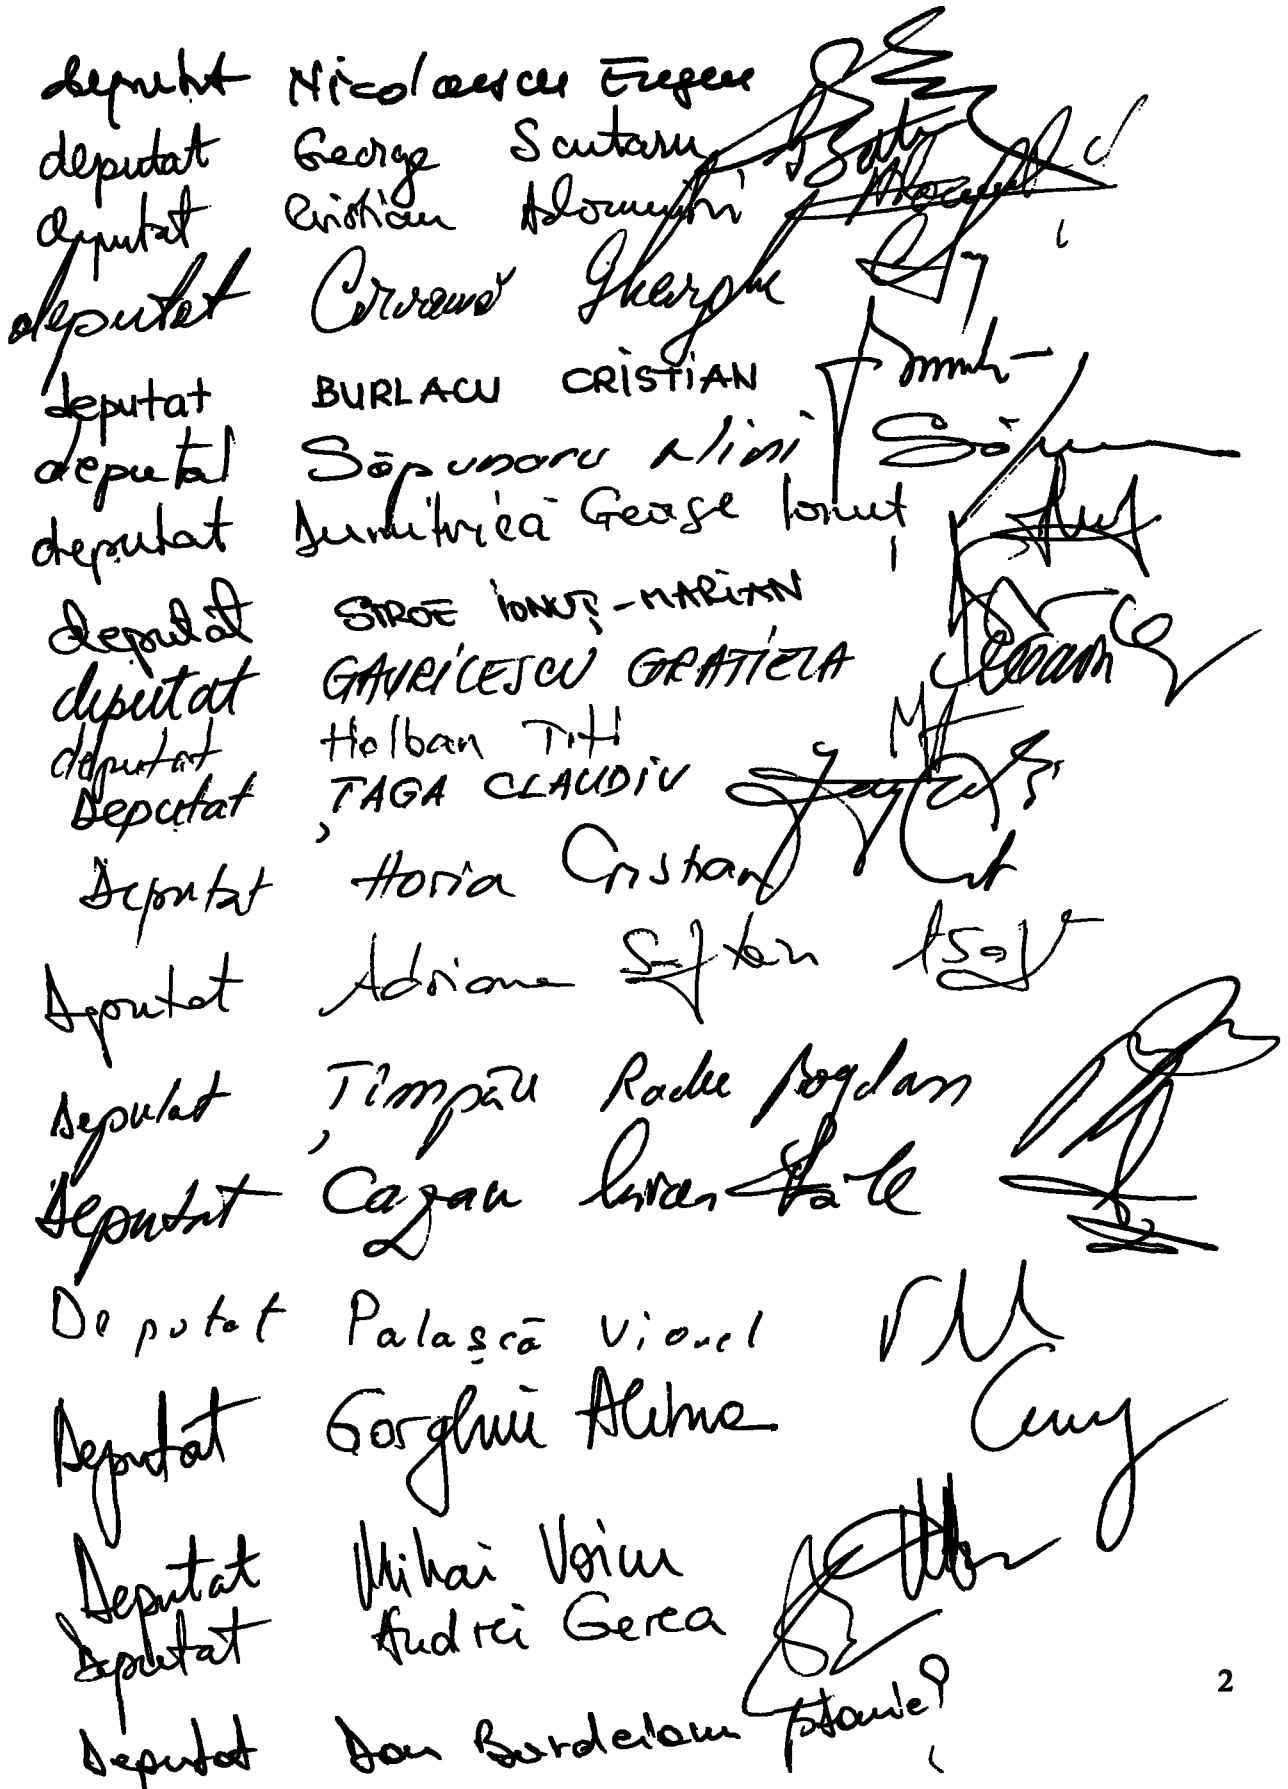 deputat Nicolaescu Eugen
deputat George Scutaru
deputat Cristian Adomniței
deputat Coroamă Gheorghe
deputat BURLACU CRISTIAN
deputat Săpunaru Nini
deputat Dumitrică George Ionuț
deputat STROE IONUȚ-MARIAN
deputat GAVRILESCU GRAȚIELA
deputat Holban Titi
Deputat ȚAGA CLAUDIU
Deputat Horia Cristian
Deputat Adriana Săftoiu
Deputat Țîmpău Radu Bogdan
Deputat Cazan Mircea Vasile
Deputat Palașcă Viorel
Deputat Gorghiu Alina
Deputat Mihai Voicu
Deputat Andrei Gerea
Deputat Dan Bordeianu
2